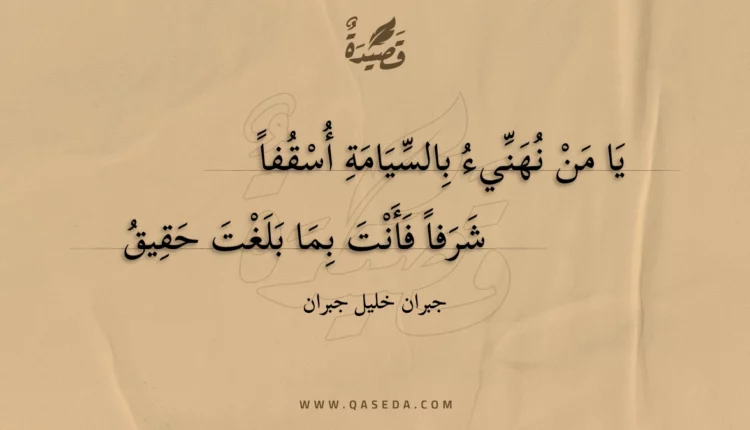 قَصِيدَةٌ
يَا مَنْ نُهَنِّيءُ بِالسِّيَامَةِ أُسْقُفاً
شَرَفاً فَأَنْتَ بِمَا بَلَغْتَ حَقِيقُ
جبران خليل جبران
WWW.QASEDA.COM